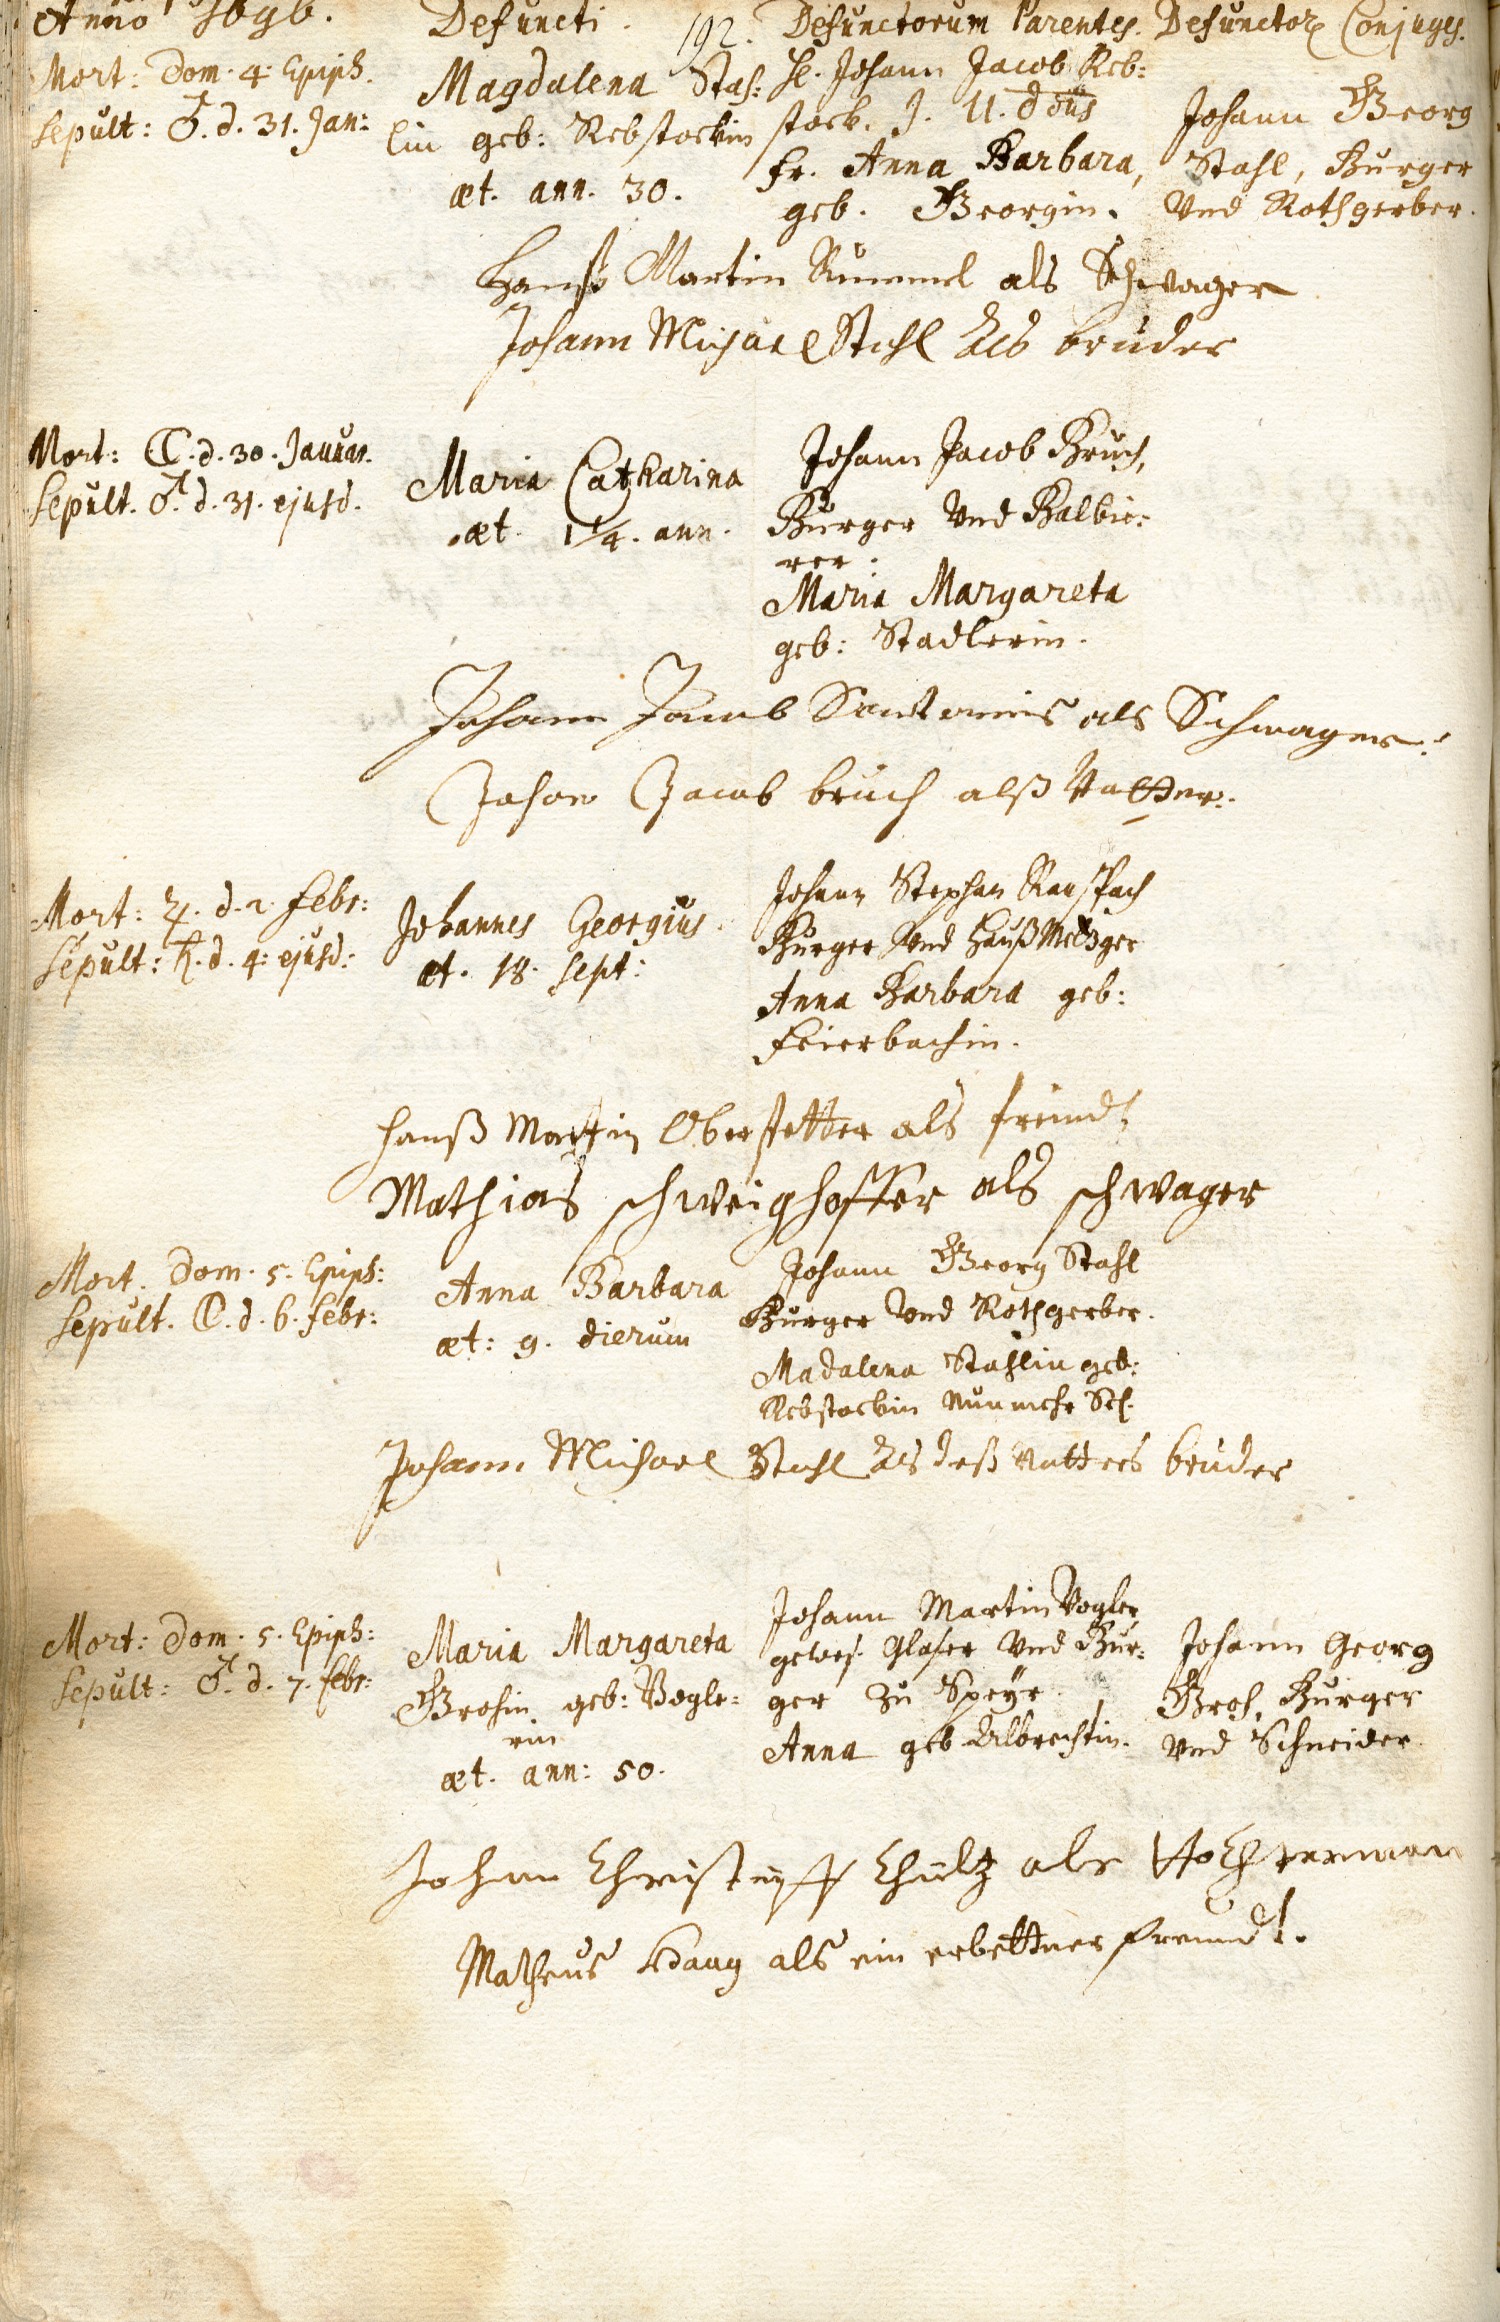 Anno 1696.
Defuncti.
192.
Defunctorum Parentes.
Defunctor. Conjuges.
Mort: Dom. 4. Epiph.
Sepult: ♂. d. 31. Jan:
Magdalena Stah:
lin geb: Rebstockin
æt. ann. 30.
H. Johann Jacob Reb:
stock. J. U. D
Fr. Anna Barbara,
geb. Georgin.
Johann Georg
Stahl, Burger
Vnd Rothgerber.
Hanß Martin Rümmel als Schwager
Johann Michael Stahl Als bruder
Mort: ☾. d. 30. Januar.
Sepult. ♂. d. 31. ejusd.
Maria Catharina
æt. 1¼. ann.
Johann Jacob Bruch,
Burger Vnd Balbie:
rer.
Maria Margareta
geb: Stadlerin.
Johann Jacob als Schwager.
Johan Jacob bruch alß Vatter.
Mort: ♃. d. 2. Febr:
Sepult: ♄. d. 4. ejusd:
Johannes Georgius.
æt. 18. sept:
Johann Stephan Rauspach
Burger Vnd Haußmetzger
Anna Barbara geb:
Feierbachin.
Hanß Martin Oberstetter als freindt
Mathias schweighoffer als schwager
Mort. Dom. 5. Epiph:
Sepult. ☾. d. 6. Febr:
Anna Barbara
æt: 9. dierum
Johann Georg Stahl
Burger Vnd Rothgerber.
Madalena Stahlin geb:
Rebstockin Nunmehr Sel.
Johann Michael Stahl Als deß Vatters bruder
Mort: Dom. 5. Epiph:
Sepult: ♂. d. 7. Febr:
Maria Margareta
Grohin geb: Vogle:
rin
æt. ann: 50.
Johann Martin Vogler
gewes. Glaser Vnd Bur:
ger zu Speyr.
Anna geb. Albrechtin.
Johann Georg
Groh, Burger
Vnd Schneider.
Johan Christoff als tochterman
Matheus Haug als ein erbettner freundt.